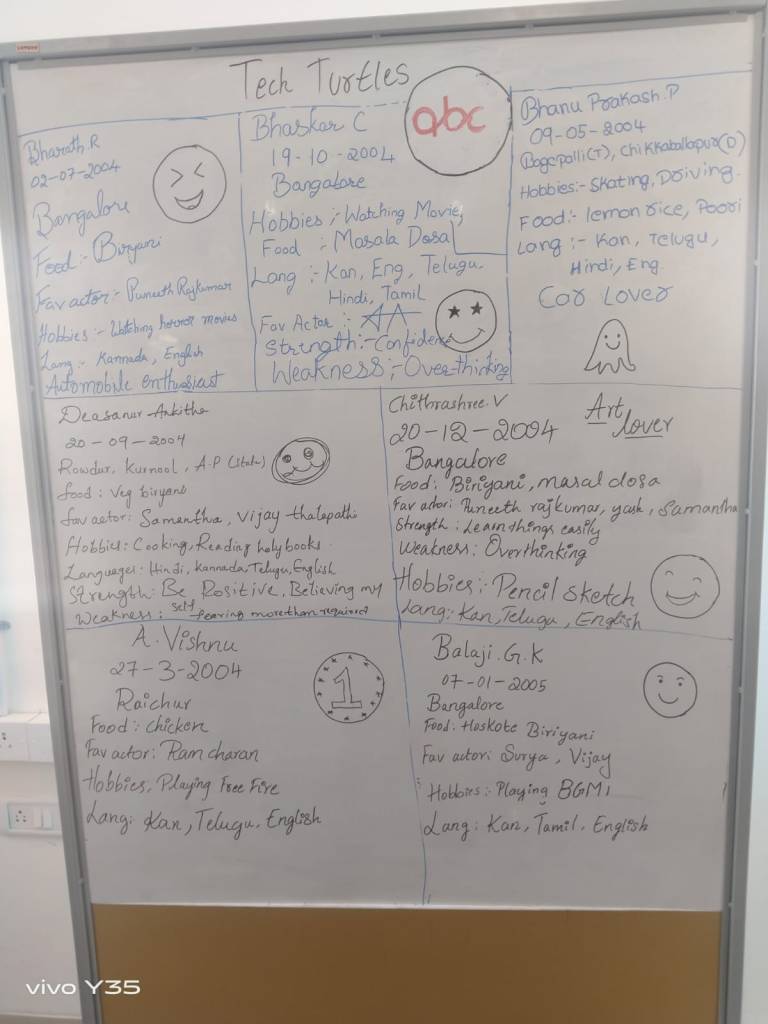 Tech Turtles
abc
Bharath.R
02-07-2004
Bangalore
Food:- Biryani
Fav actor:- Puneeth Rajkumar
Hobbies:- Watching horror movies
Lang:- Kannada, English
Automobile enthusiast
Bhaskar C
19-10-2004
Bangalore
Hobbies:- Watching Movie,
Food : Masala Dosa
Lang:- Kan, Eng, Telugu,
Hindi, Tamil
Fav Actor : AA
Strength:- Confidence
Weakness:- Over-thinking
Bhanu Prakash.P
09-05-2004
Bagepalli(T), Chikkaballapur(D)
Hobbies:- Skating, Driving.
Food:- lemon rice, Poori
Lang:- Kan, Telugu,
Hindi, Eng
Car Lover
Deasanur Ankitha
20-09-2004
Rowdur, Kurnool, A.P (State)
food: Veg biryani
fav actor: Samantha, Vijay thalapathi
Hobbies: Cooking, Reading holy books
Languages: Hindi, Kannada, Telugu, English
Strength: Be Positive, Believing my
self
Weakness: fearing more than required
Chithrashree.V
20-12-2004
Art
lover
Bangalore
Food: Biriyani, masal dosa
Fav actor: Puneeth rajkumar, yash, Samantha
Strength: Learn things easily
Weakness: Overthinking
Hobbies: Pencil sketch
Lang: Kan, Telugu, English
A. Vishnu
27-3-2004
Raichur
Food: chicken
Fav actor: Ram charan
Hobbies, Playing Free Fire
Lang: Kan, Telugu, English
1
Balaji.G.K
07-01-2005
Bangalore
Food: Hoskote Biriyani
Fav actor: Surya, Vijay
Hobbies:- Playing BGMI
Lang: Kan, Tamil, English
vivo Y35